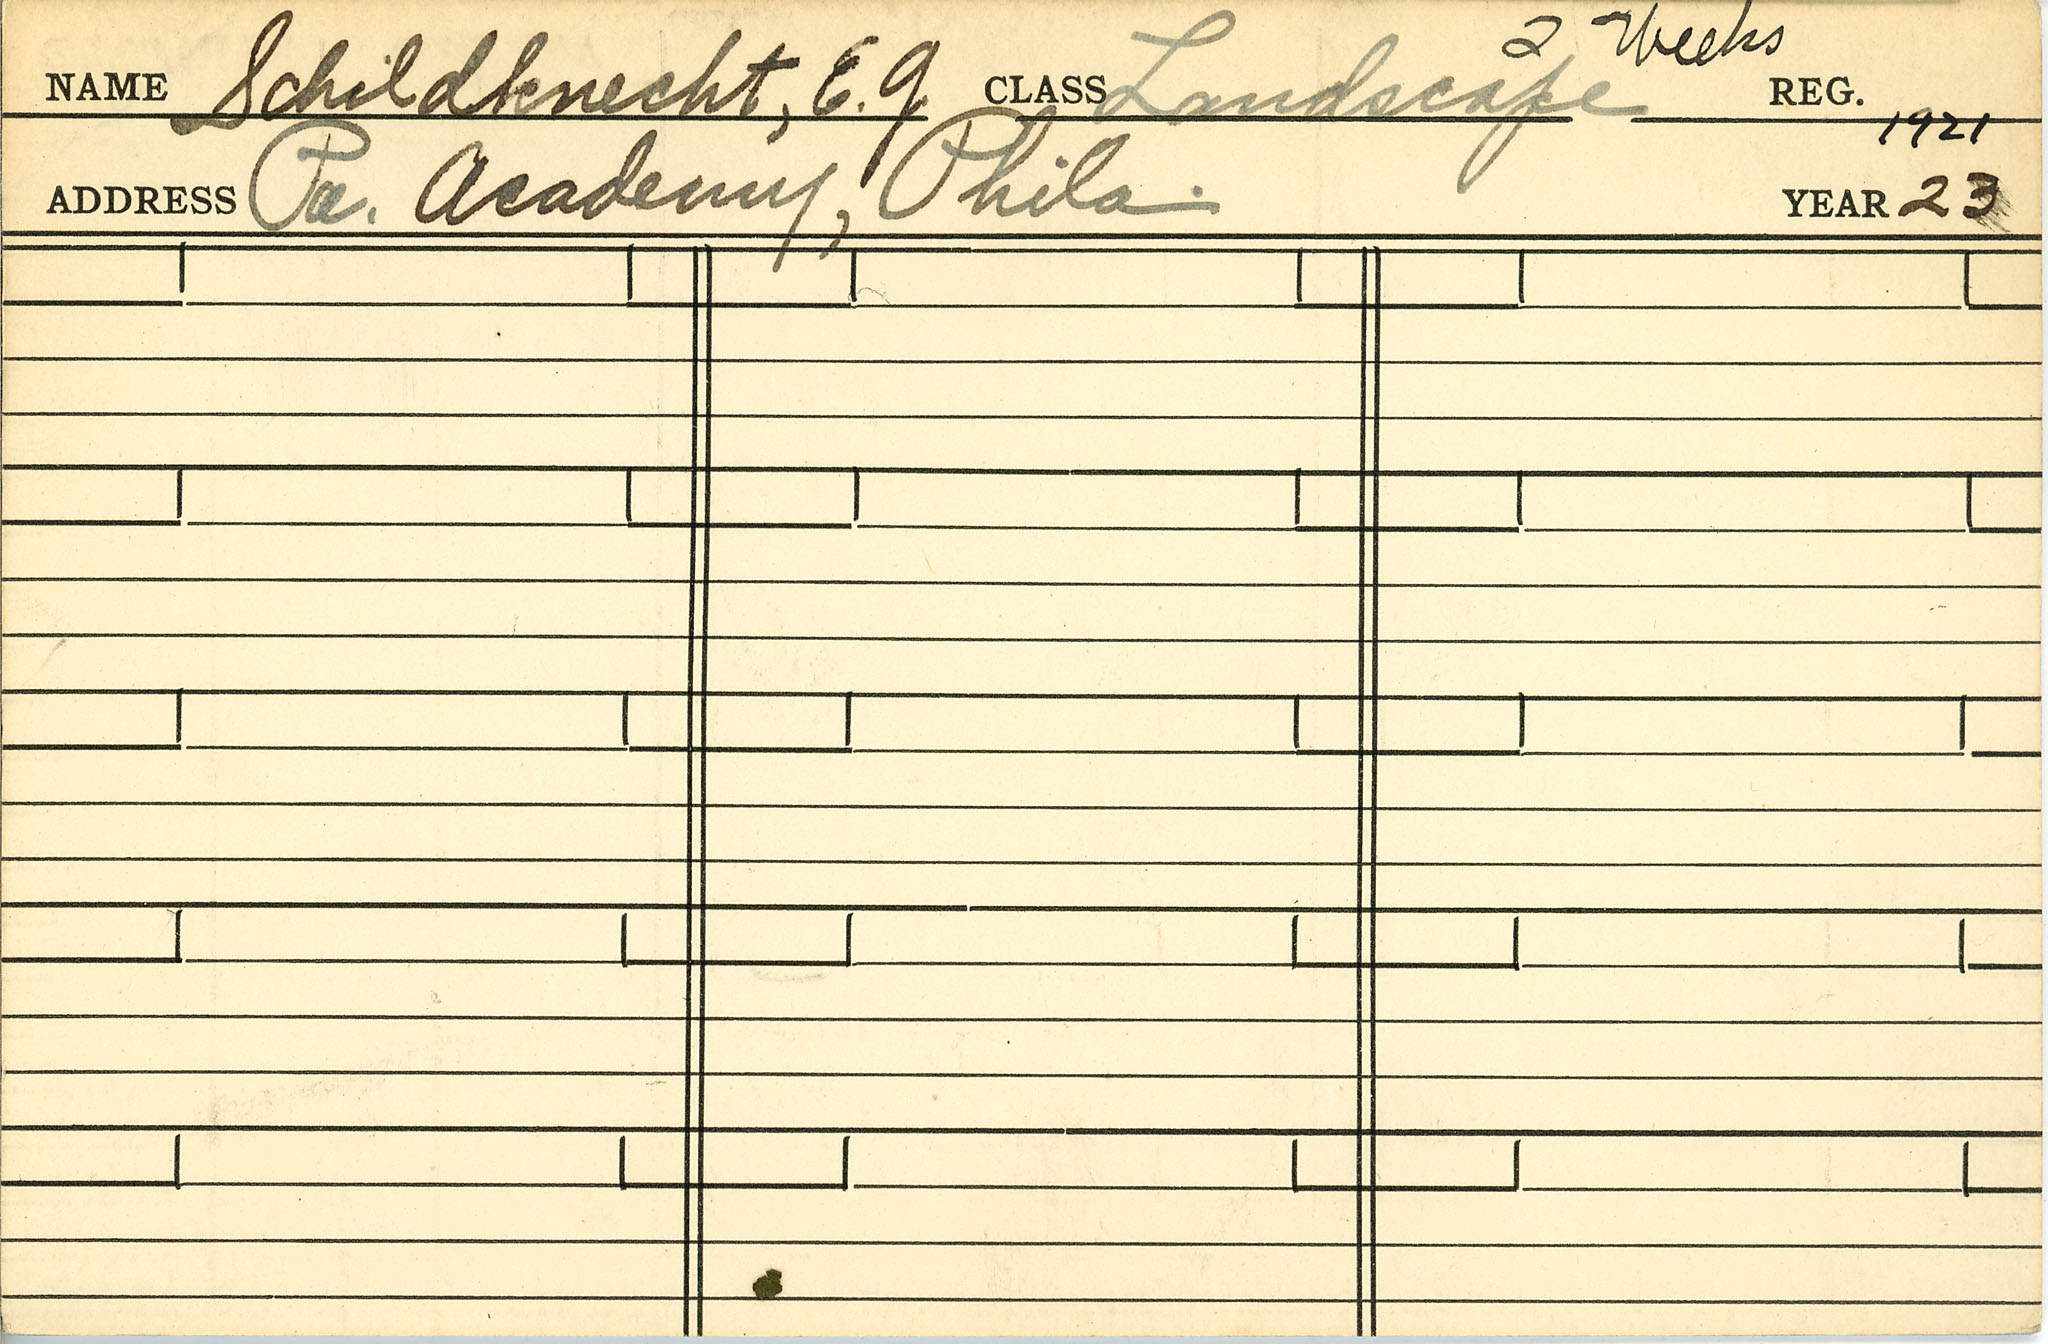 2 Weeks
NAME Schildknecht, E. G. CLASS Landscape REG.
1921
ADDRESS Pa. Academy, Phila. YEAR 23